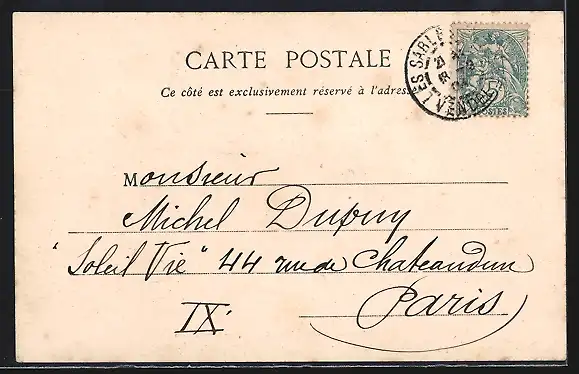 CARTE POSTALE
Ce côté est exclusivement réservé à l'adres
LES SABLE
VENDÉE
Monsieur
Michel Dupuy
"Soleil Vie" 44 rue de Chateaudun
Paris
IX